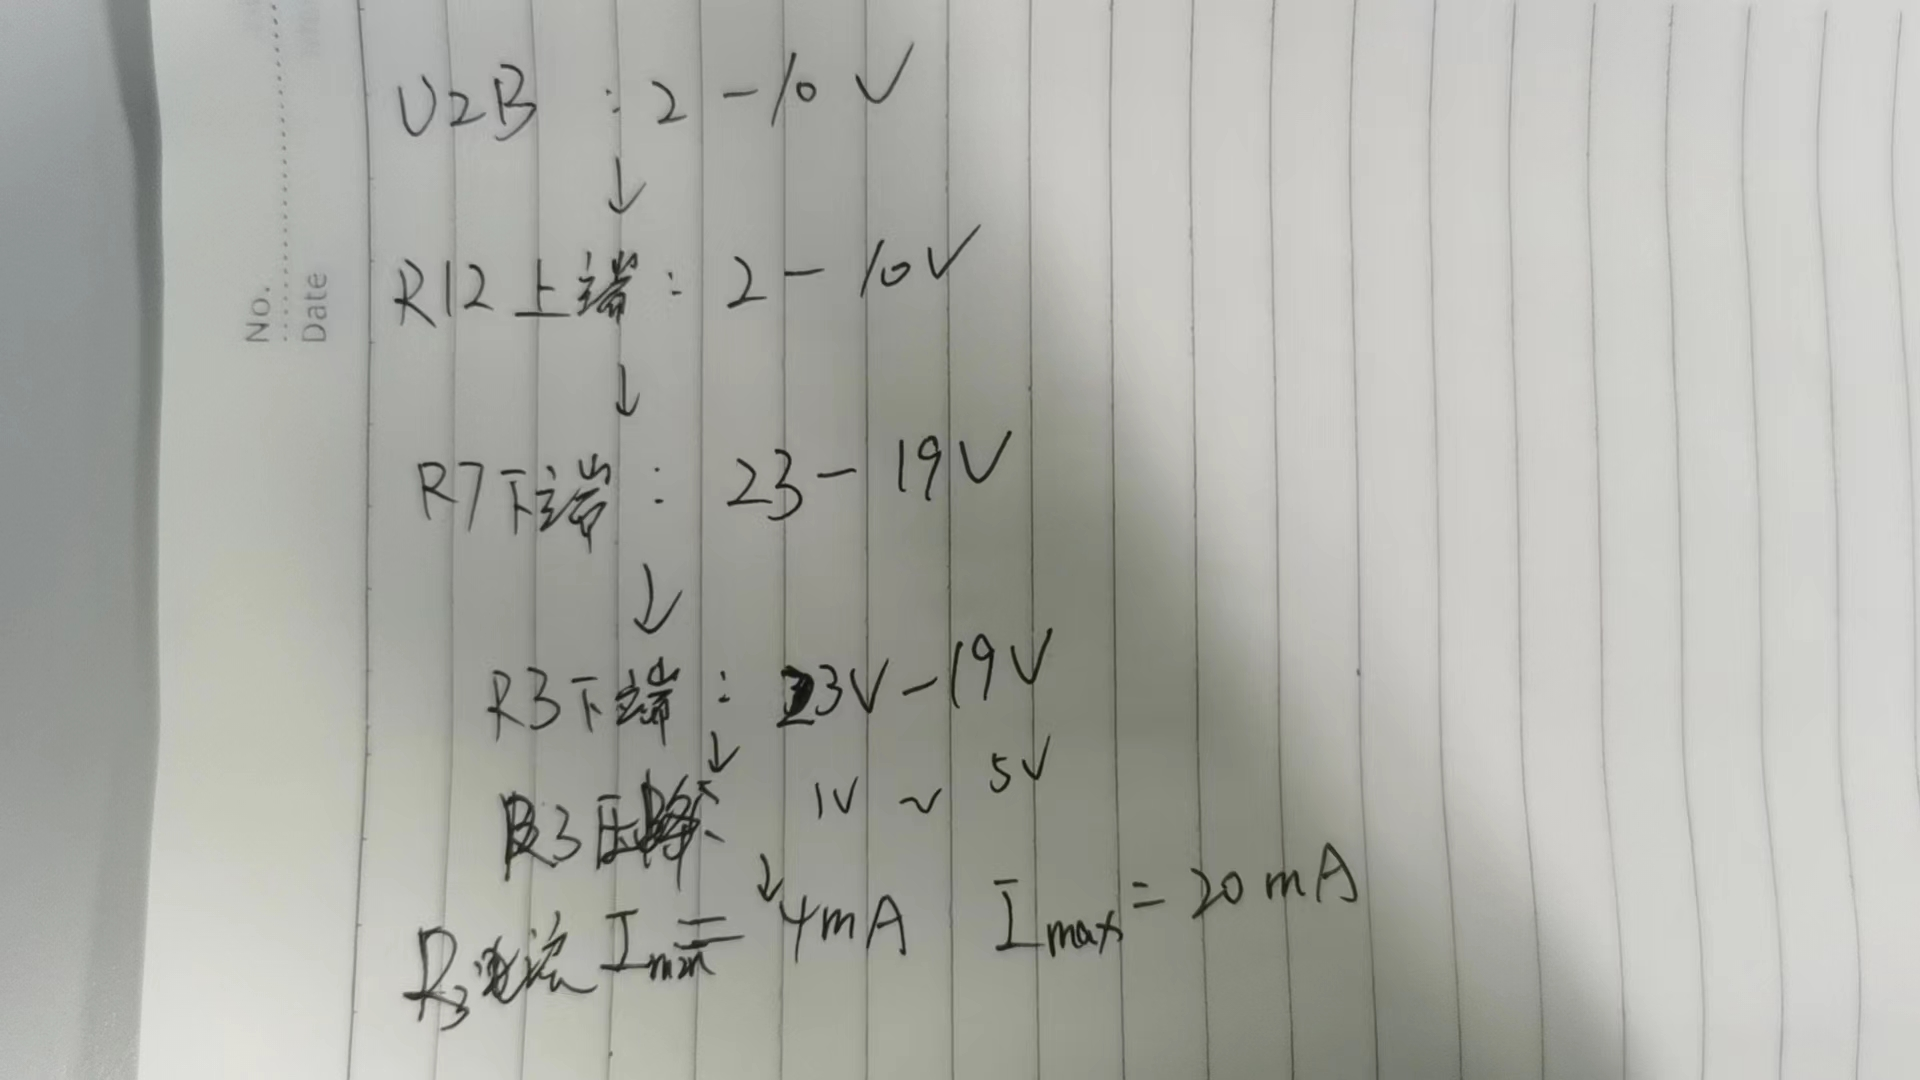 No.
Date
U2B : 2 - 10 V
↓
R12 上端 : 2 - 10V
↓
R7 下端 : 23 - 19V
↓
R3 下端 : 23V - 19V
↓
R3 压降 1V ~ 5V
↓
R3 电流 Imin = 4mA Imax = 20mA